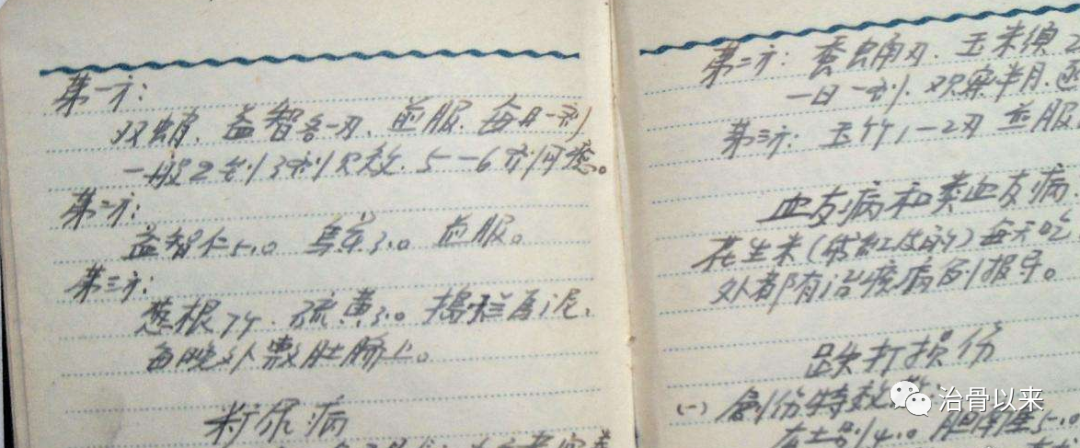 第一方:
双蛸、益智各一刃、煎服、每日一剂
一般2剂3剂见效、5-6剂可愈。
第二方:
益智仁5.0 乌药3.0 煎服。
第三方:
葱根7个、硫黄3.0 捣烂为泥、
每晚外敷肚脐上。
第二方: 蚕蛹 刃、玉米须2
一日一剂、观察半月、
第三方: 玉竹1-2刃 煎服
血友病和类血友病
花生米(带红皮的)每天吃
外都有治疗病例报导。
跌打损伤
(一) 创伤特效
5.0
治骨以来